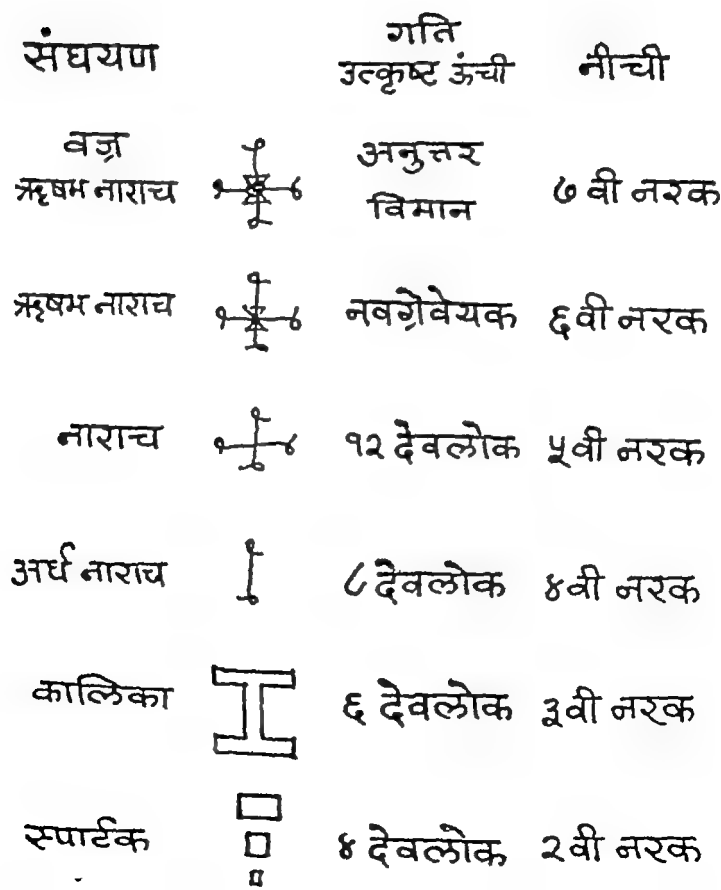 गति
संघयण उत्कृष्ट ऊंची नीची
वज्र अनुत्तर
ऋषभ नाराच विमान ७ वी नरक
ऋषभ नाराच नवग्रेवेयक ६वी नरक
नाराच १२ देवलोक ५वी नरक
अर्ध नाराच ८ देवलोक ४वी नरक
कालिका ६ देवलोक ३वी नरक
स्पार्टक ४ देवलोक २वी नरक